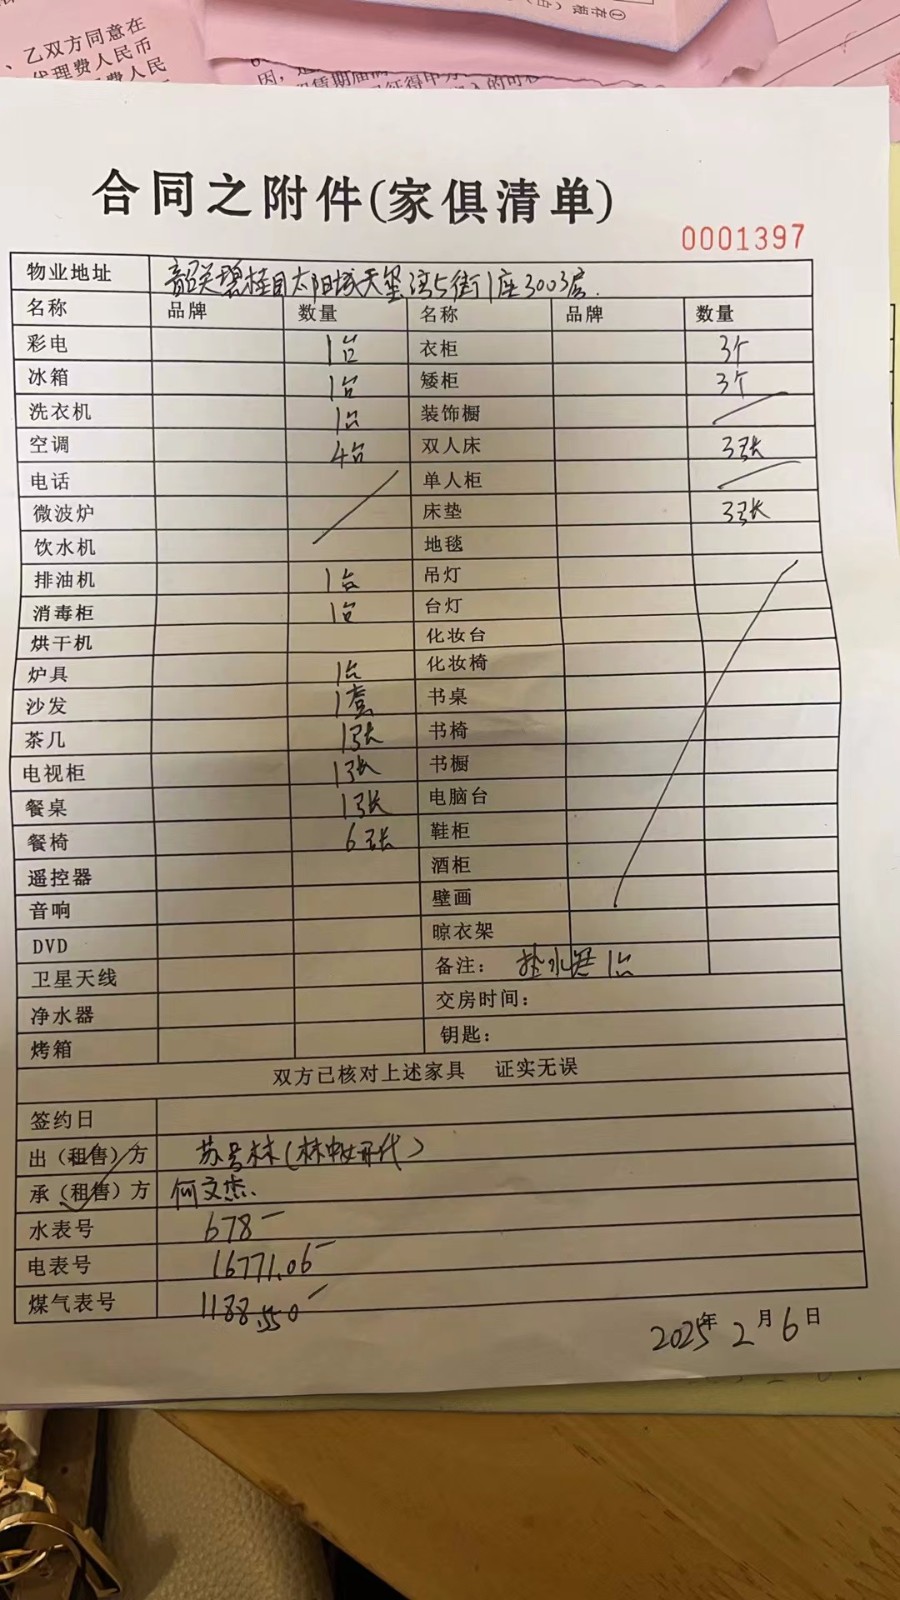 、乙双方同意在
代理费人民币
费人民
合同之附件(家俱清单)
0001397
物业地址 韶关碧桂园太阳城天玺湾5街1座3003房.
名称 品牌 数量 名称 品牌 数量
彩电 1台 衣柜 3个
冰箱 1台 矮柜 3个
洗衣机 1台 装饰橱
空调 4台 双人床 3张
电话 单人柜
微波炉 床垫 3张
饮水机 地毯
排油机 1台 吊灯
消毒柜 1台 台灯
烘干机 化妆台
炉具 1台 化妆椅
沙发 1套 书桌
茶几 1张 书椅
电视柜 1张 书橱
餐桌 1张 电脑台
餐椅 6张 鞋柜
遥控器 酒柜
音响 壁画
DVD 晾衣架
卫星天线 备注: 热水器 1台
净水器 交房时间:
烤箱 钥匙:
双方已核对上述家具 证实无误
签约日
出(租售)方 苏号林(林中女开代)
承(租售)方 何文杰.
水表号 678
电表号 16771.06
煤气表号 1188.550
2025年 2月6日